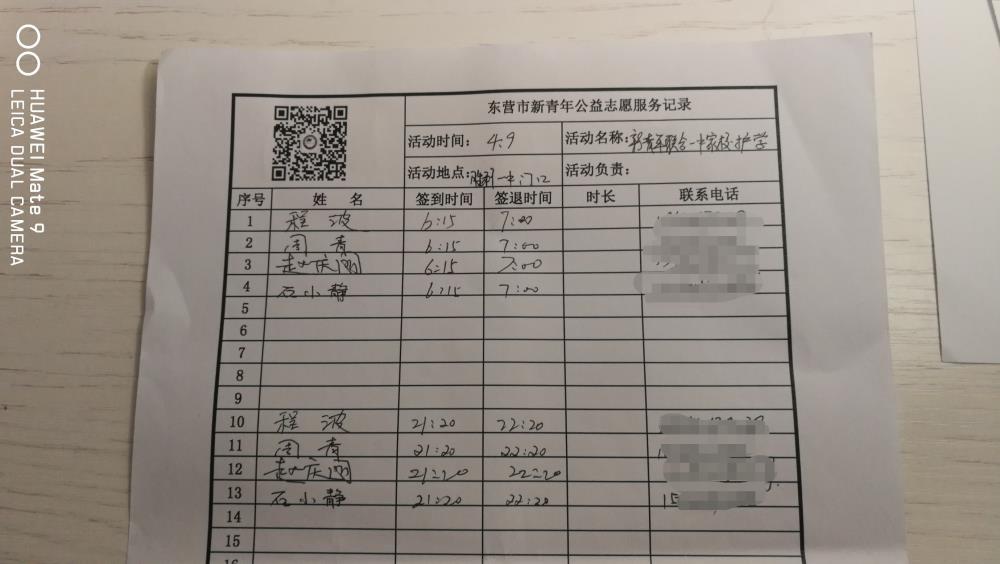 HUAWEI Mate 9
LEICA DUAL CAMERA
东营市新青年公益志愿服务记录
活动时间: 4.9 活动名称: 新青年联合一中家校护学
活动地点: 胜利一中门口 活动负责:
序号 姓 名 签到时间 签退时间 时长 联系电话
1 程波 6:15 7:00
2 周青 6:15 7:00
3 赵庆 6:15 7:00
4 石小静 6:15 7:00
5
6
7
8
9
10 程波 21:20 22:20
11 周青 21:20 22:20
12 赵庆 21:20 22:20
13 石小静 21:20 22:20 15
14
15
16